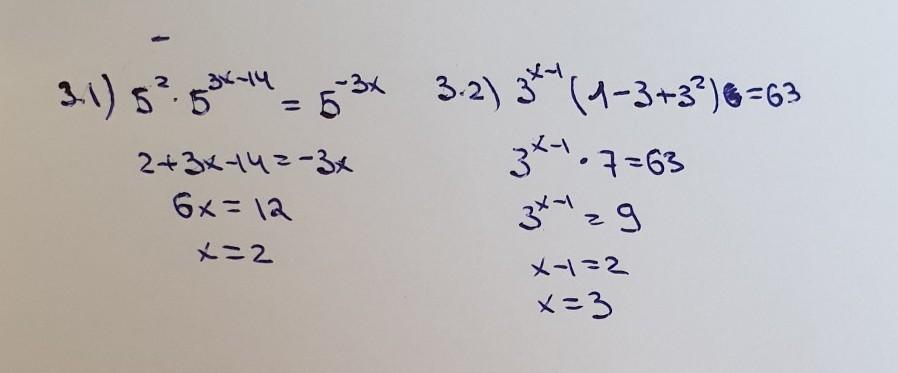 3.1) 5² · 5³ˣ⁻¹⁴ = 5⁻³ˣ
2+3x-14=-3x
6x=12
x=2
3.2) 3ˣ⁻¹(1-3+3²)=63
3ˣ⁻¹ · 7=63
3ˣ⁻¹ = 9
x-1=2
x=3